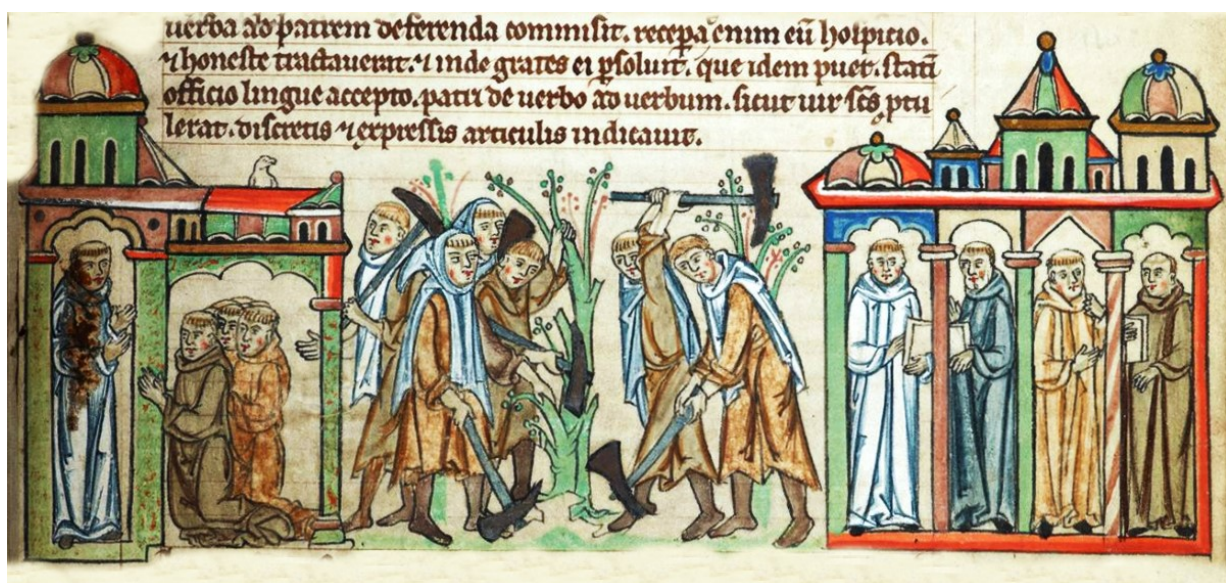 uerba ad patrem deferenda commisit. recep̱at enim eū hospicio.
⁊ honeste tractauerat. ⁊ inde grates ei ꝑsoluit. que idem puer. statī
officio lingue accepto. patri de uerbo ad uerbum. sicut uir scs̄ ptu
lerat. discretis ⁊ expressis articulis indicauit.